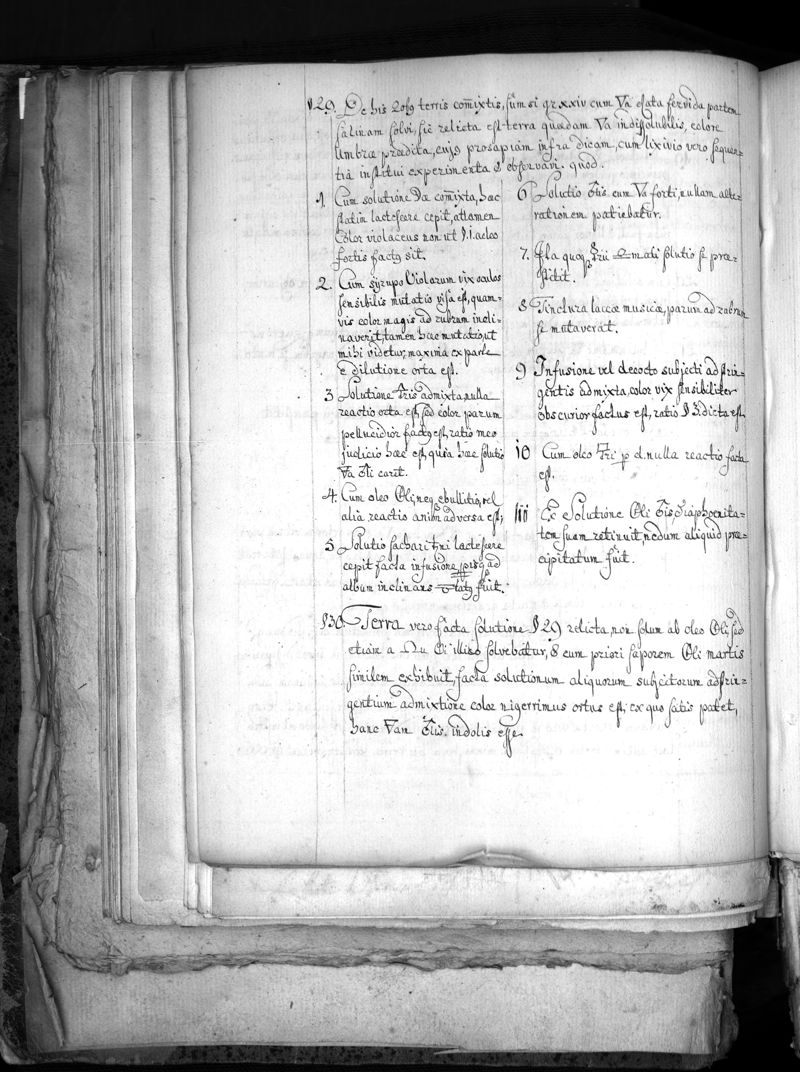 §29. De his terris com̄ixtis, sum̄si gr xxiv cum ▽a dstata fervida partem
salinam solvi, sic relicta est terra quædam ▽a indissolubilis, colore
Umbræ prædita, cujs prosapiam infra dicam, cum lixivio vero sequen=
tia institui experimenta & observavi. quod.
1. Cum solutione com̄ixta, hæc
statim lactescere cepit, attamen
color violaceus non ut §.1. adeo
fortis facts sit.
2. Cum syrupo Violarum vix oculos
sensibilis mutatio visa est, quam=
vis color magis ad rubrum incli=
naverit, tamen hæc mutatio, ut
mihi videtur, maxima ex parte
e dilutione orta est.
3 Solutione admixta, nulla
reactio orta est, sed color parum
pellucidior facts est, ratio meo
judicio hæc est, quia hæc solutio
▽a caret.
4. Cum oleo Oli, neq ebullitio, vel
alia reactio animadversa est;
5 Solutio sachari ♄ni lactescere
cepit facta infusione ad
album inclinans fuit.
6 Solutio cum ▽a forti, nullam alte=
rationem patiebatur.
7. Ita quoq solutio se præ=
stitit.
8 Tinctura laccæ musicæ, parum ad rubrum
se mutaverat.
9 Infusione vel decocto subjecti adstrin=
gentis admixta, color vix sensibiliter
obscurior factus est, ratio §3 dicta est,
10 Cum oleo p d. nulla reactio facta
est.
11 & Solutione Oli diaphoenita=
tem suam retinuit, nedum aliquid præ=
cipitatum fuit.
§30. Terra vero facta solutione §29 relicta, non solum ab oleo Oli, sed
etiam a illico solvebatur, & cum priori saporem Oli martis
similem exhibuit, facta solutionum aliquorum subjectorum adstrin=
gentium admixtione color nigerrimus ortus est; ex quo satis patet,
hanc ▽am indolis esse.